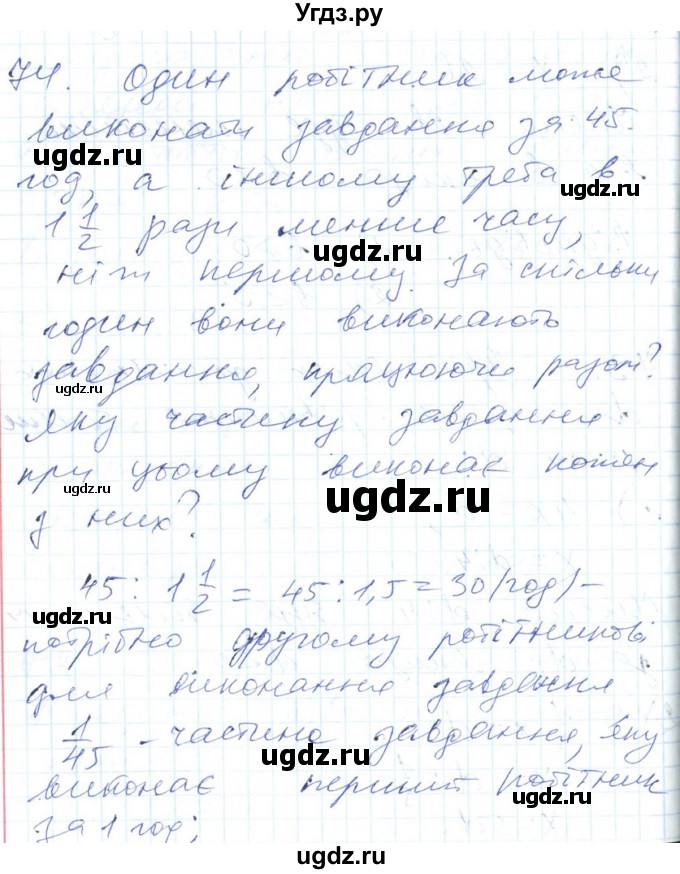 Угдз.ру
74. Один робітник може
виконати завдання за 45
ugdz.ru
год, а іншому треба в
ugdz.ru
1 1/2 рази менше часу,
ugdz.ru
ніж першому. За скільки
годин вони виконають
ugdz.ru
завдання, працюючи разом?
Яку частину завдання
при цьому виконає кожен
ugdz.ru
ugdz.ru
з них?
45 : 1 1/2 = 45 : 1,5 = 30 (год) –
ugdz.ru
потрібно другому робітникові
ugdz.ru
для виконання завдання
1/45 - частина завдання, яку
ugdz.ru
виконає перший робітник
за 1 год;
ugdz.ru